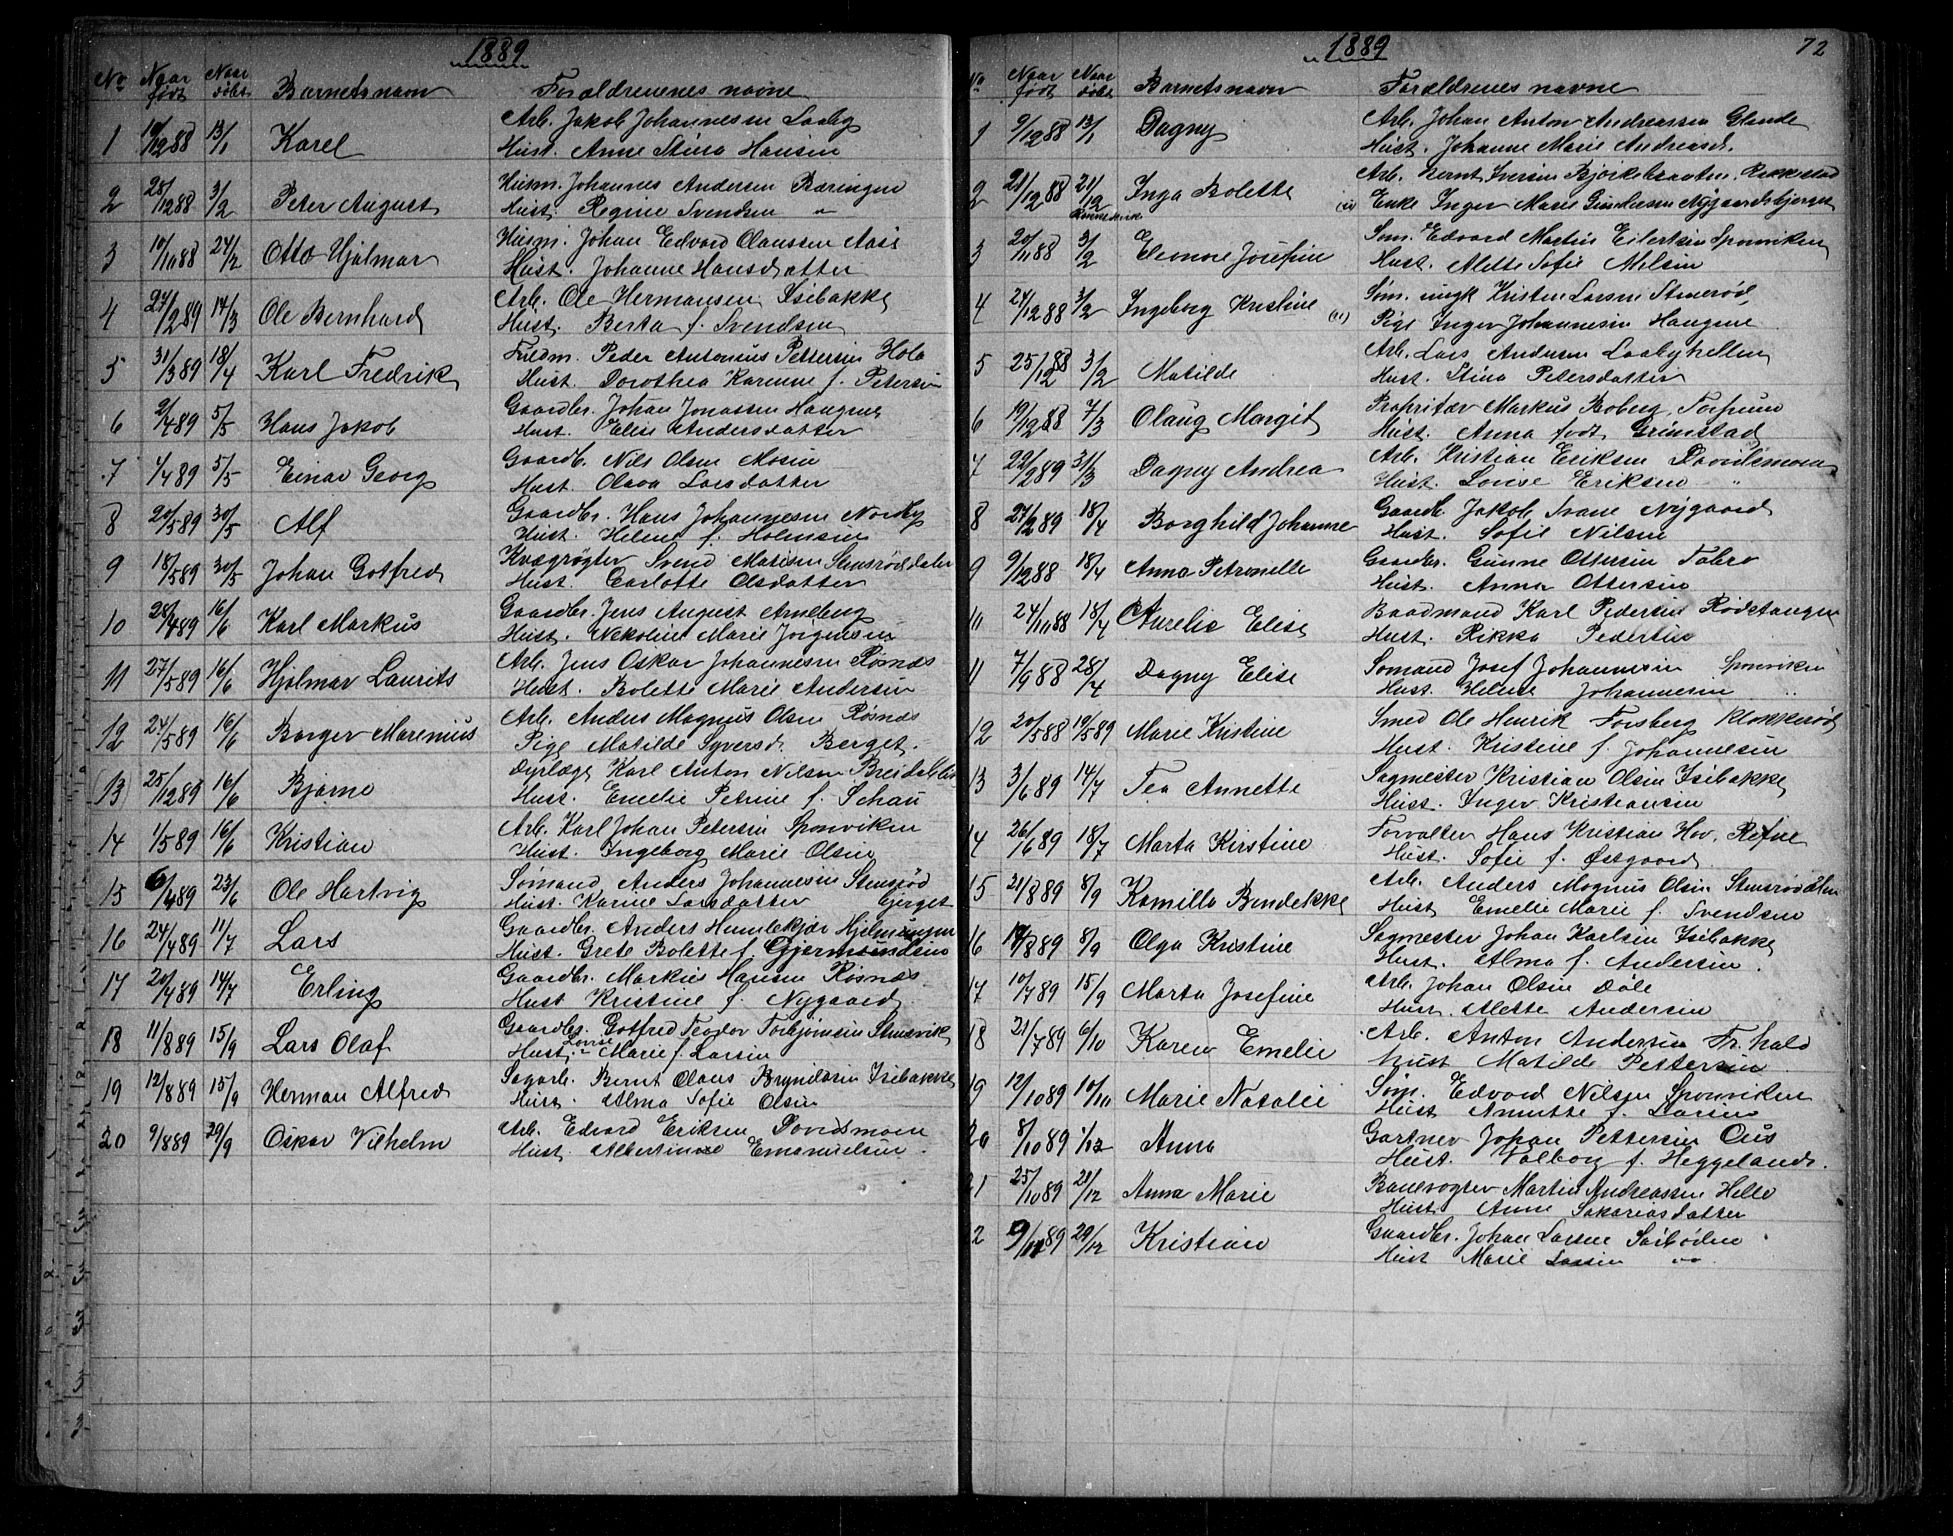 1889
No Naar født Naar døbt Barnets navn Forældrenenes navne
1 10/12 88 13/1 Karel Arb. Jakob Johannesen Laaby
Hust. Anne Stina Hansen
2 28/12 88 3/2 Peter August Husm. Johannes Andersen Bæringen
Hust. Regine Svendsen "
3 10/11 88 24/2 Otto Hjalmar Husm. Johan Edvard Olaussen Aase
Hust. Johanne Hansdatter
4 27/2 89 14/3 Ole Bernhard Arb. Ole Hermansen Isebakke
Hust. Berta f. Svendsen
5 31/3 89 18/4 Karl Fredrik Peder Antonius Pettersen Holo
Hust. Dorothea Karenne f. Petersen
6 2/4 89 5/5 Hans Jakob Gaardbr. Johan Jonassen Haugene
Hust. Elise Andersdatter
7 1/4 89 5/5 Einar Georg Gaardb. Nils Olsen Mosen
Hust. Olava Larsdatter
8 20/5 89 30/5 Alf Gaardbr. Hans Johannesen Nordby
Hust. Helene f. Holmsen
9 18/5 89 30/5 Johan Gotfred Kvægrøgter Svend Matisen Stensrøddalen
Hust. Carlotte Olsdatter
10 28/4 89 16/6 Karl Markus Gaardbr. Jens August Arneberg
Hust. Nikoline Marie Jørgensen
11 27/5 89 16/6 Hjalmar Laurits Arb. Jens Oskar Johannesen Røsnæs
Hust. Bolette Marie Andersen
12 24/5 89 16/6 Borger Marenius Arb. Anders Magnus Olsen Røsnæs
Pige Matilde Syversd. Berget.
(13) 25/12 89 16/6 Bjarne Dyrlæge Karl Anton Nilsen
Hust. Emelie Petrine f. Schau
14 1/5 89 16/6 Kristian Arb. Karl Johan Petersen Sponviken
Hust. Ingeborg Marie Olsen
15 6/4 89 23/6 Ole Hartvig Sømand Anders Johannesen Stensrød
Hust. Karine Larsdatter berget
16 24/4 89 11/7 Lars Gaardbr. Anders Humlekjær Hjelmungen
Hust. Grete Bolette f. Gjermundsen
17 20/4 89 14/7 Erling Gaardbr. Markus Hansen Røsnæs
Hust Kristine f. Nygaard
18 11/8 89 15/9 Lars Olaf Gaardbr. Gotfred Teodor Torbjørnsen Stensvik
Hust. Lovise Marie f. Larsen
19 12/8 89 15/9 Herman Alfred Sagarb. Bernt Olaus Bryndlsen Isebakke
Hust. Alma Sofie Olsen
20 9/8 89 29/9 Oskar Vilhelm Arb. Edvard Eriksen Davidsmoen
Hust. Albertine Emanuelsen.
1889 72
No Naar født Naar døbt Barnets navn Forældrenes navne
1 9/12 88 13/1 Dagny Arb. Johan Anton Andreassen Glende
Hust. Johanne Marie Andreasd.
2 21/12 88 21/12 Inga Bolette Arb. Bernt Iversen Bjørkebraaten, Rakkestad
Hjemmedøbt (u) Enke Inger Marie Gundersen Nygaardsbjerget
3 20/11 88 3/2 Eleonore Josefine Søm. Edvard Martin Eilertsen Sponviken
Hust. Alette Sofie Nilsen
4 24/12 88 3/2 Ingeborg Kristine Søm. ungk Kristen Larsen Stenerød
(u) Pige Inger Johannesen Haugene
5 25/12 88 3/2 Matilde Arb. Lars Andersen Laabyhellen
Hust. Stina Petersdatter
6 19/12 88 7/3 Olaug Margit Proprietær Markus Boberg, Torpum
Hust. Anna født Grimstad
7 22/2 89 31/3 Dagny Andrea Arb. Kristian Eriksen Davidsmoen
Hust. Lovise Eriksen "
8 27/2 89 18/4 Borghild Johanne Gaardb. Jakob Svane Nygaard
Hust. Sofie Nilsen
9 9/12 88 18/4 Anna Petronelle Gaardbr. Gunne Ottersen Fabro
Hust. Anna Ottersen
10 24/11 88 18/4 Aurelie Elise Baadmand Karl Pedersen Rødstangen
Hust. Rikka Pedersen
11 7/9 88 28/4 Dagny Elise Sømand Josef Johannesen Sponviken
Hust. Helene Johannesen "
12 20/5 88 19/5 89 Marie Kristine Smed Ole Henrik Forsberg Klokkerød
Hust. Kristine f. Johannesen
13 3/6 89 14/7 Tea Annette Sagmester Kristian Olsen Isebakke
Hust. Inger Kristiansen
14 26/6 89 18/7 Marta Kirstine Forvalter Hans Kristian Hov, Refne
Hust. Sofie f. Østgaard.
15 21/8 89 8/9 Kamilla Bendekke Arb. Anders Magnus Olsen Stensrødd
Hust Emelie Marie f. Svendsen
16 8/9 Olga Kristine Sagmester Johan Karlsen Isebakke
Hust. Alma f. Andersen.
17 10/7 89 15/9 Marta Josefine Arb. Johan Olsen Dale
Hust. Alette Andersen
18 21/7 89 6/10 Karen Emelie Arb. Anton Andersen Fr.hald
Hust Matilde Pettersen
19 12/10 89 10/11 Marie Natalie Søm. Edvard Nilsen Sponviken
Hust Annette f. Larsen
20 8/10 89 1/12 Anna Gartner Johan Pettersen Ous
Hust. Valborg f. Heggelund.
21 25/10 89 21/12 Anna Marie Banevogter Martin Andreassen Helle
Hust. Anne Sakariasdatter
2 9/11 89 29/12 Kristian Gaardbr. Johan Larsen Sørbøden
Hust Marie Larsen "